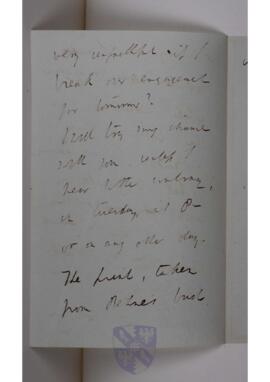 very ungrateful if I
break our engagement
for tomorrow?
I will try my chance
with you, unless I
hear to the contrary,
on Tuesday, at 8 –
or on any other day.
The print, taken
from Behnes' bust